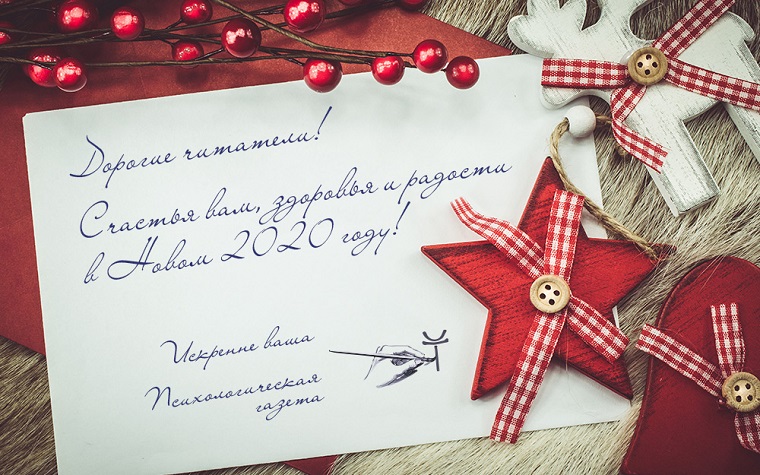 Дорогие читатели!
Счастья вам, здоровья и радости
в Новом 2020 году!
Искренне ваша
Психологическая
газета